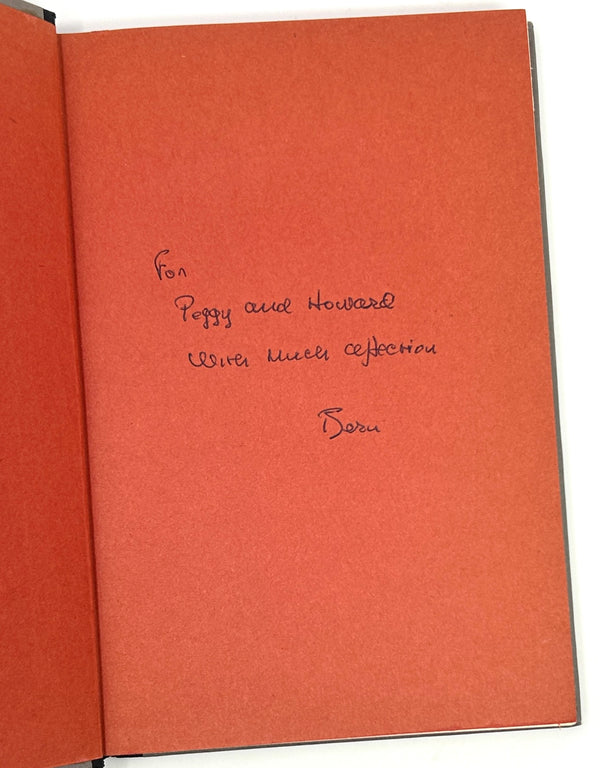 For
Peggy and Howard
With much affection
Berni